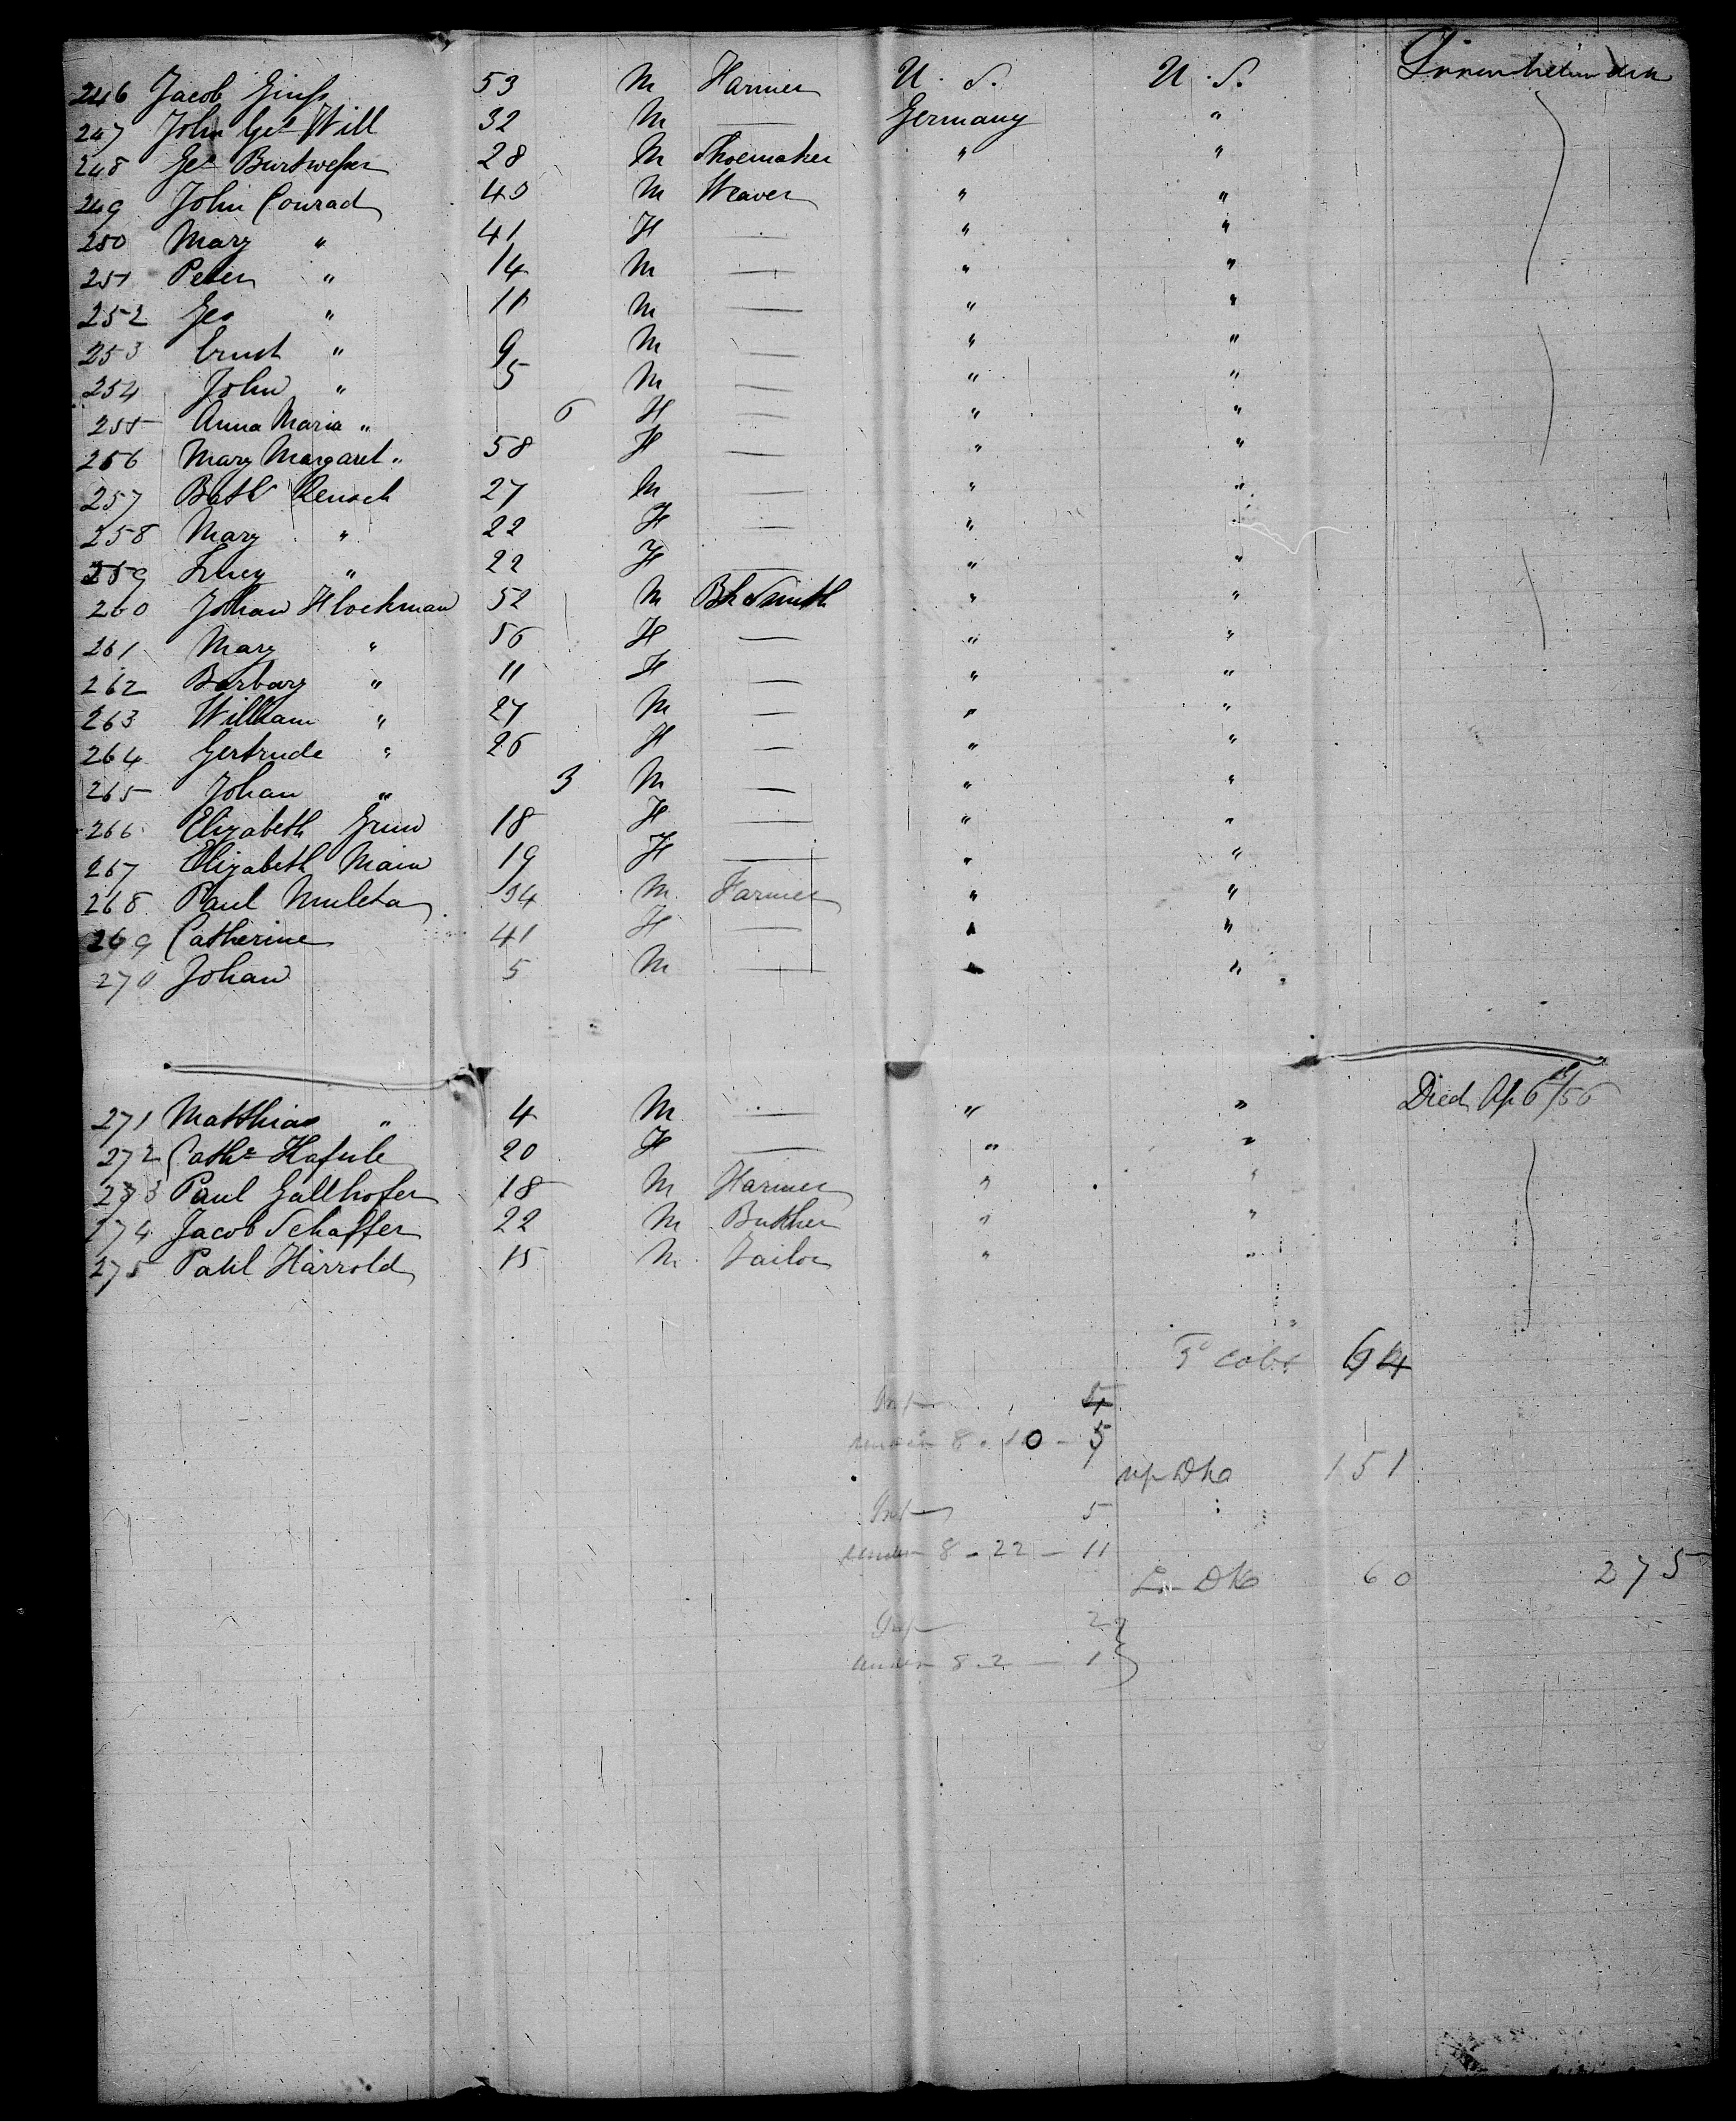 246 Jacob 53 M Farmer U. S. U. S.
247 John Geo Will 32 M — Germany "
248 Geo 28 M Shoemaker " "
249 John Conrad 40 M Weaver " "
250 Mary " 41 F — " "
251 Peter " 14 M — " "
252 Geo " 11 M — " "
253 Ernst " 9 M — " "
254 John " 5 M — " "
255 Anna Maria " 6 F — " "
256 Mary Margaret " 58 F — " "
257 27 M — " "
258 Mary " 22 F — " "
259 Lucy " 22 F — " "
260 Johan Flockman 52 M Bk Smith " "
261 Mary " 56 F — " "
262 Barbary " 11 F — " "
263 William " 27 M — " "
264 Gertrude " 26 F — " "
265 Johan " 3 M — " "
266 Elizabeth 18 F — " "
267 Elizabeth Main 19 F — " "
268 Paul 34 M Farmer " "
269 Catherine 41 F — " "
270 Johan 5 M — " "
271 Matthias " 4 M — " " Died Ap 6th/56
272 Cathe 20 F — " "
273 Paul Gallhofer 18 M Farmer " "
274 Jacob Schaffer 22 M Butcher " "
275 Paul Harrold 15 M Tailor " "
64
Inf
under 8 - 10 - 5
up Dk 151
Inf 5
under 8 - 22 - 11
Lr Dk 60 275
Inf 2
under 8 - 2 - 1